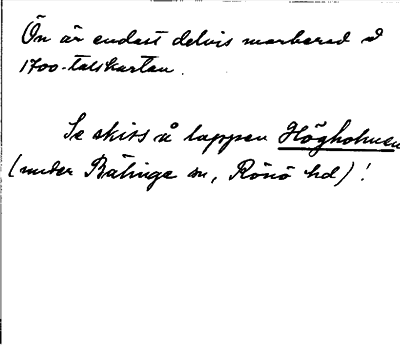 Ön är endast delvis markerad å
1700-talskartan.
Se skiss å lappen Högholmen
(under Bälinge sn, Rönö hd)!